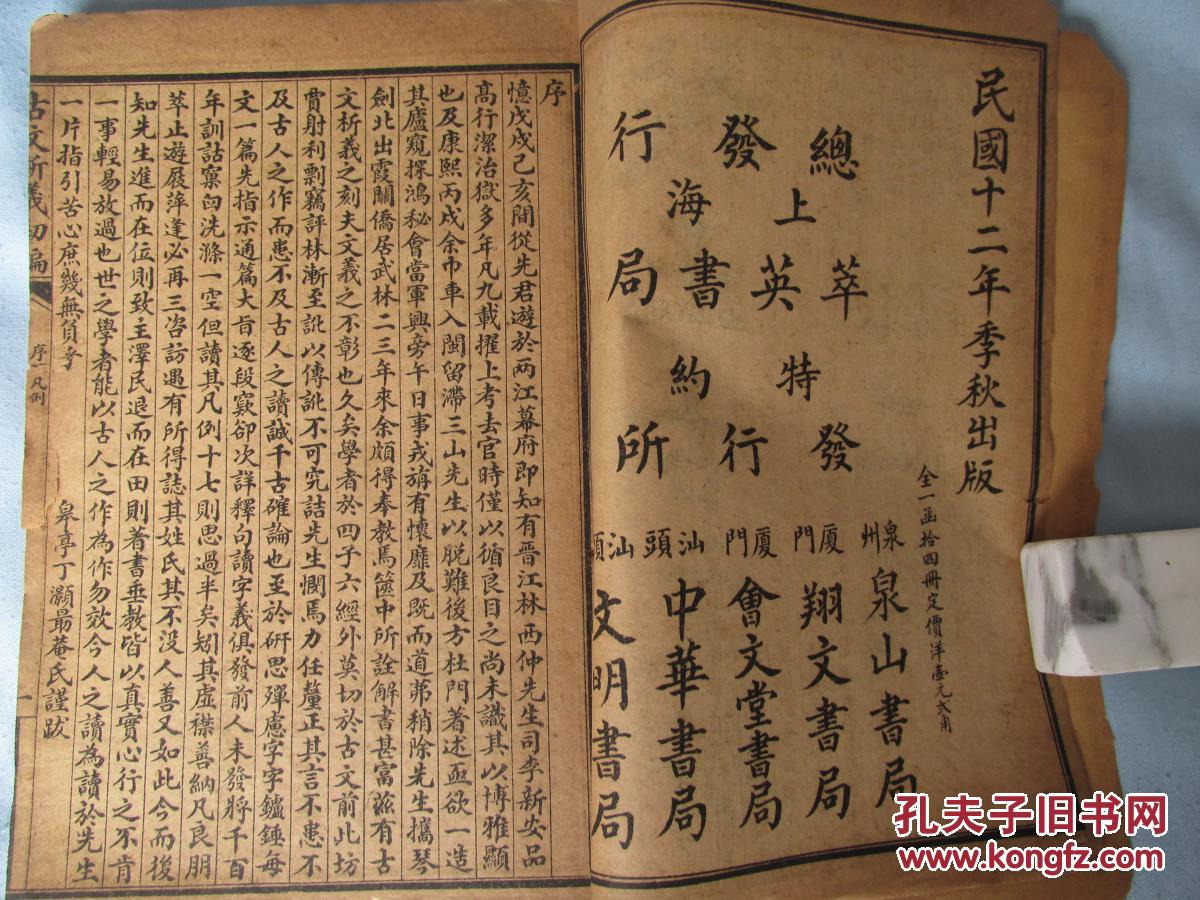 民國十二年季秋出版
全一函拾四冊定價洋壹元弍角
總發行
上海
萃英書局
特約
發行所
泉州泉山書局
廈門翔文書局
廈門會文堂書局
汕頭中華書局
汕頭文明書局
序
憶戊戌己亥間從先君遊於两江幕府即知有晋江林西仲先生司李新安品
高行潔治獄多年凡九載擢上考去官時僅以循良目之尚未識其以博雅顯
也及康熙丙戌余巾車入閩留滯三山先生以脱難後方杜門著述亟欲一造
其廬窺探鴻秘會當軍興旁午日事戎旃有懷靡及既而道茀稍除先生攜琴
劍北出霞關僑居武林二三年來余頗得奉教焉篋中所詮解書甚富茲有古
文析義之刻夫文義之不彰也久矣學者於四子六經外莫切於古文前此坊
賈射利剽竊評林漸至訛以傳訛不可究詰先生憫焉力任釐正其言不患不
及古人之作而患不及古人之讀誠千古確論也至於研思殫慮字字鑪錘每
文一篇先指示通篇大旨逐段窽卻次詳釋句讀字義俱發前人未發將千百
年訓詁窠臼洗滌一空但讀其凡例十七則思過半矣矧其虛襟善納凡良朋
萃止遊屐萍逢必再三咨訪遇有所得誌其姓氏其不没人善又如此今而後
知先生進而在位則致王澤民退而在田則著書垂教皆以真實心行之不肯
一事輕易放過也世之學者能以古人之作為作勿效今人之讀為讀於先生
一片指引苦心庶幾無負乎
皋亭丁灝最菴氏謹跋
古文析義初編
序 凡例
一
孔夫子旧书网
www.kongfz.com